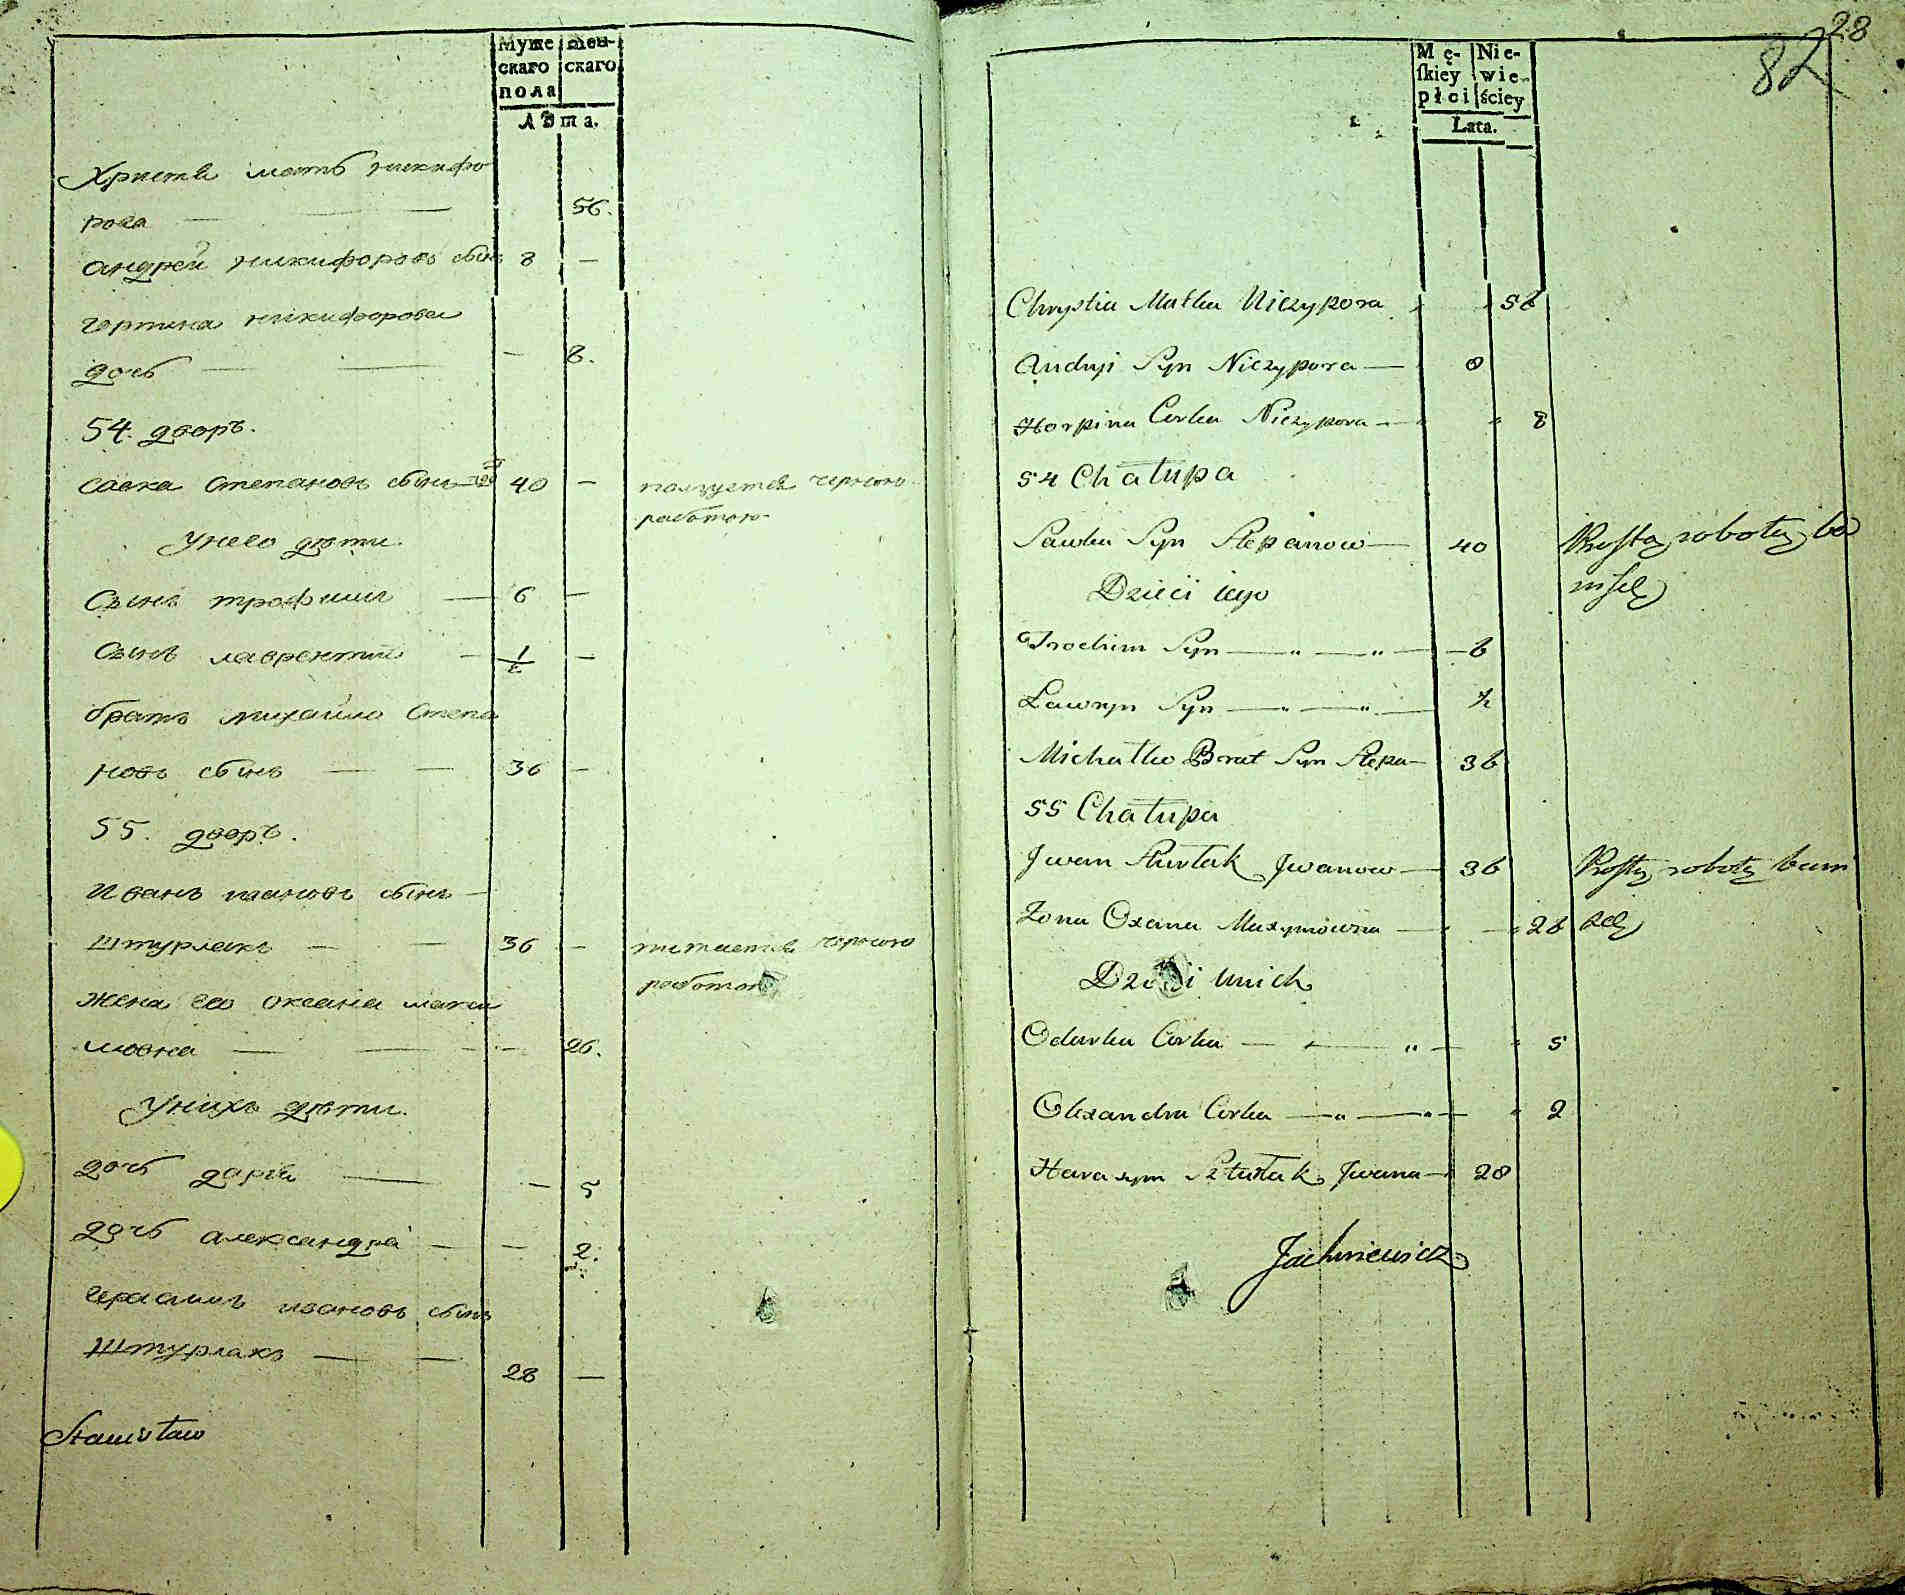 Муже скаго пола
жен- скаго
Лѣта.
Христя мать никифо
рова — 56.
андрей никифоровъ сынъ 8 —
горпина никифорова
дочь — — 8.
54. дворъ.
савка степановъ сынъ — 40 —
ползуется черною
работою
унего дѣти.
Сынъ трофимъ — 6 —
Сынъ лаврентий — 1/2 —
братъ михайло степа
новъ сынъ — — 36 —
55. дворъ.
Иванъ ивановъ сынъ —
штурлакъ — — 36 —
питается черною
работою
жена его оксана макси
мовна — — — 26.
унихъ дѣти.
дочь дария — — 5
дочь александра — — 2.
герасимъ ивановъ сынъ
Штурлакъ — — 28 —
Stanisław
28
82
Mę- skiey płci
Nie- wie- ściey
Lata.
Chrystia Matka Niczypora 56
Andryi Syn Niczypora — 8
Horpina Corka Niczypora — 8
54 Chałupa
Sawka Syn Stepanow — 40
Prostą robotą ba
wi się
Dzieci iego
Trochim Syn — „ — „ — 6
Ławryn Syn — „ — „ — ½
Michałko Brat Syn Stepa — 36
55 Chałupa
Jwan Szturlak Jwanow — 36
Prostą robotą bawi
się
Żona Oxana Maxymowna — 26
Dzieci unich
Odarka Corka — „ — 5
Olexandra Corka — „ — „ — 2
Harasym Szturlak Jwana — 28
Jachniewicz